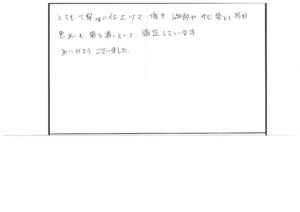 とても丁寧に仕上げて頂き 細部や サビ落とし等も
色あいも 落ち着いていて 満足しています
ありがとうございました。